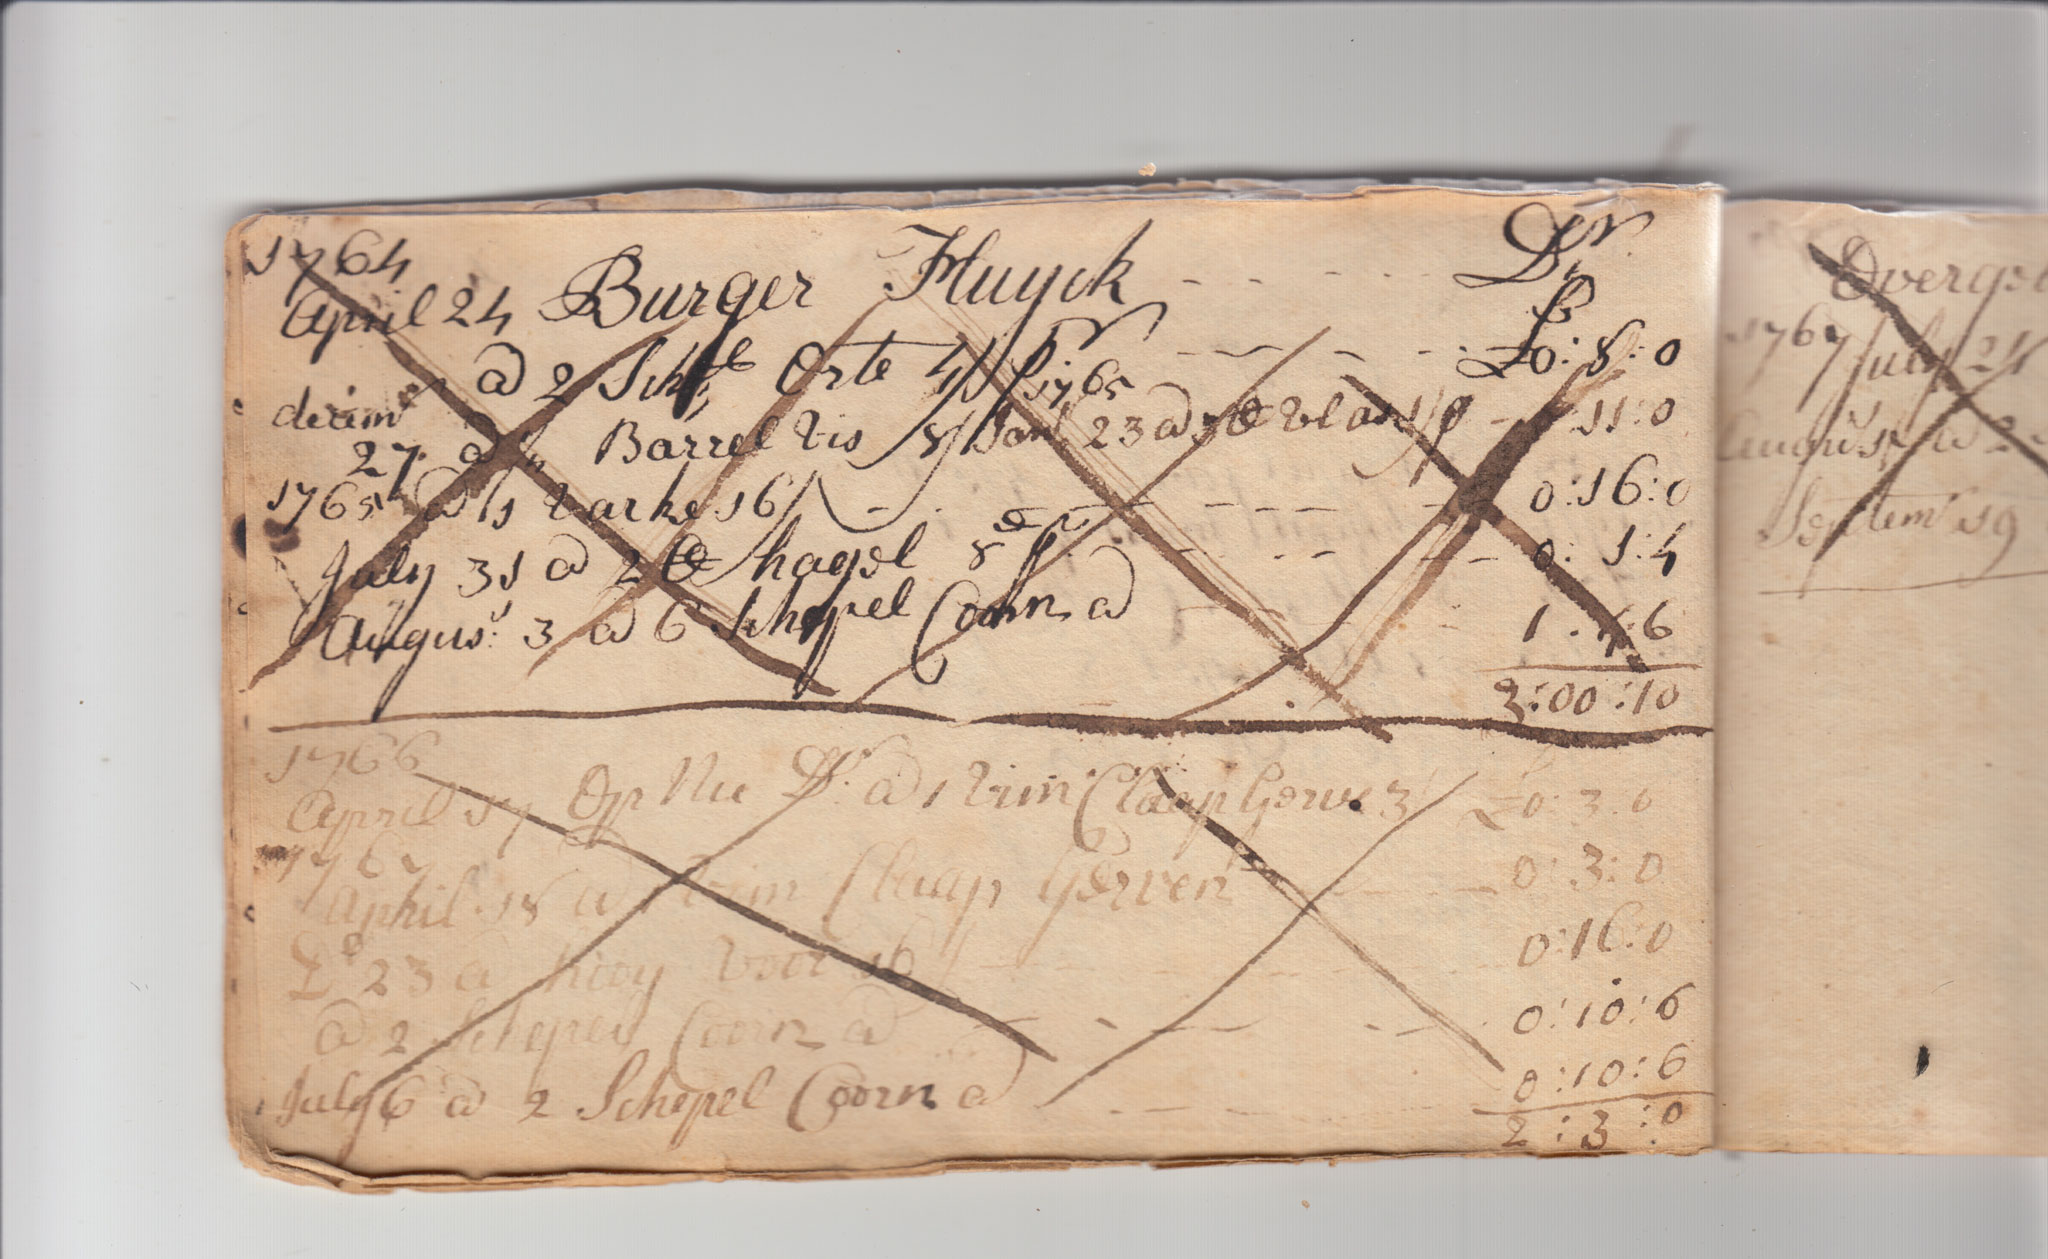 1764
April 24 Burger Huyck Dr
@ 2 Schl Orte 4/ pr £0:8:0
decemr 1765
27 @ Barrel Vis 8/ Jan 23 @ 3 ℔ Vlas 1/ p 11:0
1765 @ 1 Varke 16/ 0:16:0
July 31 @ 2 ℔ hagel 8 p 0:1:4
Augus: 3 @ 6 Schepel Coorn @ 1: :6
2:00:10
1766
April 17 Op Nu Dr @ 1 Vim Claap Gerve 3/ £0:3:0
1767
April 18 @ Vim Claap Gerven 0:3:0
Do 23 @ hooy voor 16/ 0:16:0
@ 2 Schepel Coorn @ 0:10:6
July 6 @ 2 Schepel Coorn @ 0:10:6
2:3:0
1767 July 24
Augus @ 2
Septemr 19